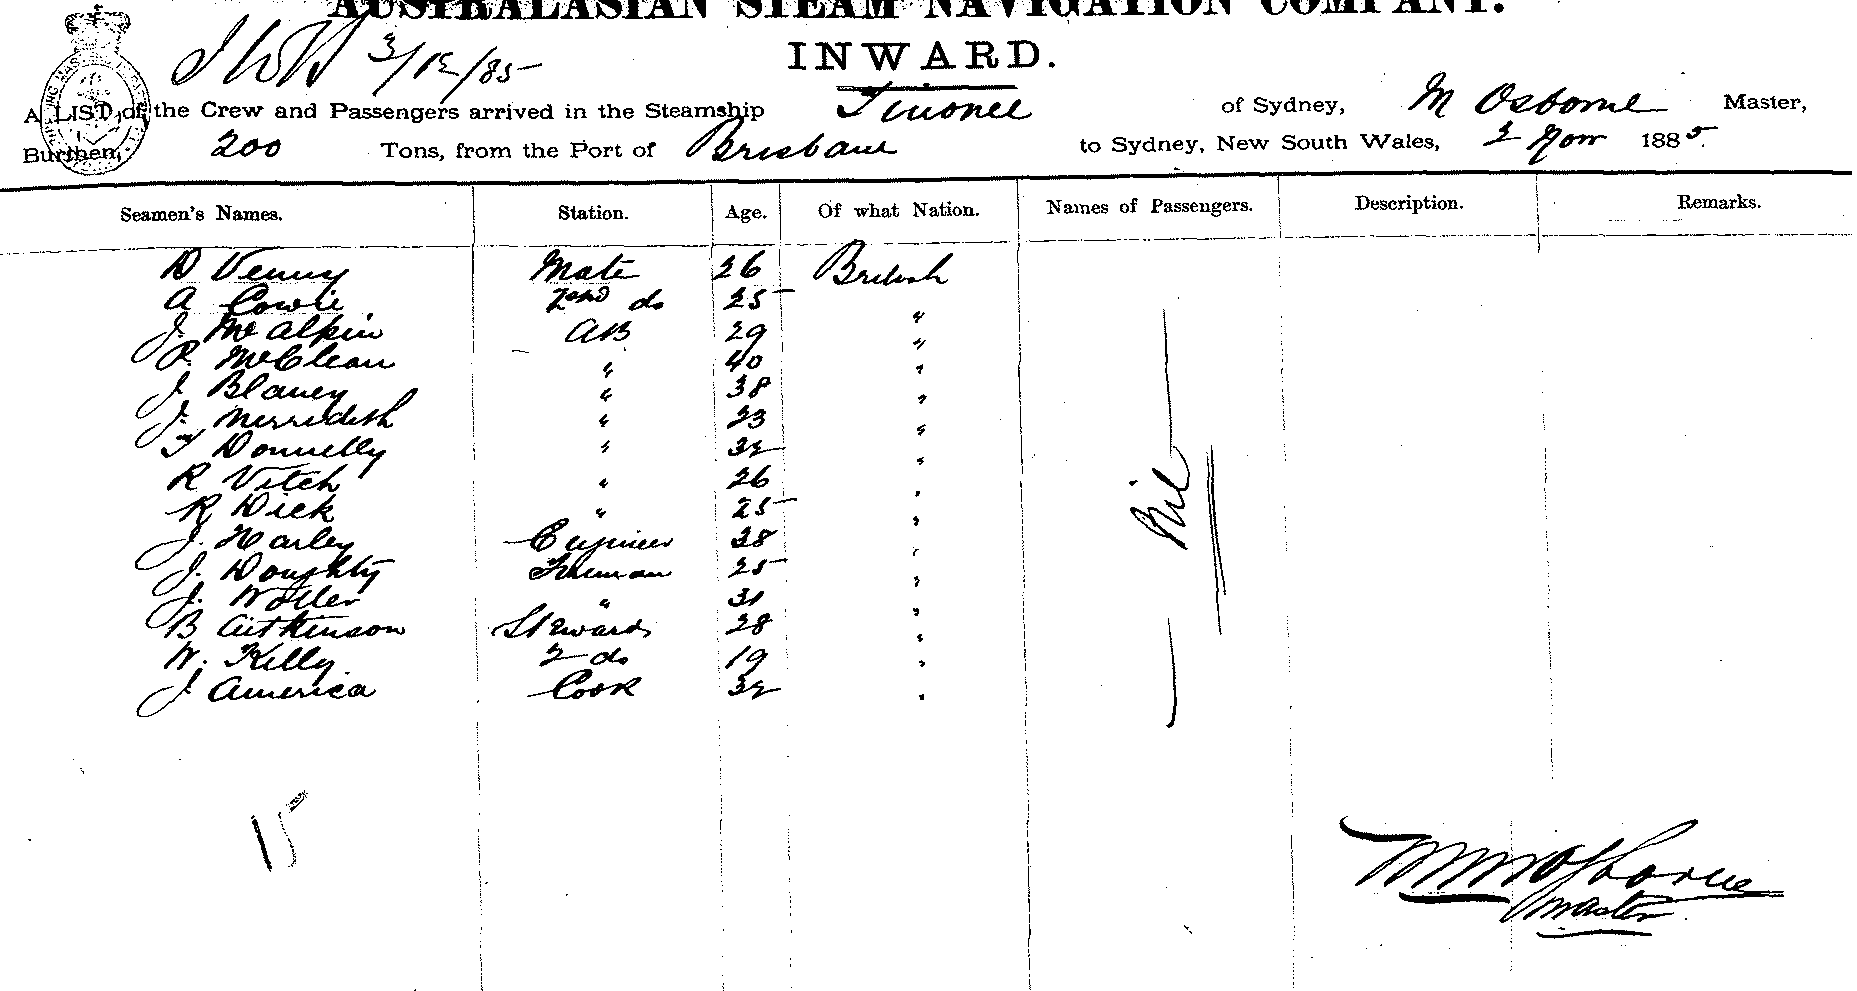 AUSTRALASIAN STEAM NAVIGATION COMPANY.
3/12/85
INWARD.
A LIST of the Crew and Passengers arrived in the Steamship Tinonee of Sydney, M Osborne Master,
Burthen, 200 Tons, from the Port of Brisbane to Sydney, New South Wales, 2 Nov 1885.
Seamen's Names. Station. Age. Of what Nation. Names of Passengers. Description. Remarks.
D Venny Mate 26 British
A Cowie 2nd do 25 "
J. McAlpin AB 29 "
P. McClean " 40 "
J. Blaney " 38 "
J. Merridith " 23 "
T Donnelly " 32 "
R Vitch " 26 "
R Dick " 25 "
J. Harley Engineer 38 "
J. Doughty Fireman 25 "
J. " 31 "
B Aitkinson Steward 28 "
W. Killy 2 do 19 "
J. America Cook 32 "
Nil
15
Osborne
Master